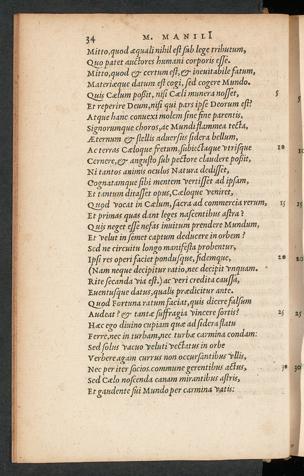 34 M. MANILI
Mitto, quod æquali nihil est sub lege tributum,
Quo patet auctores humani corporis esse.
Mitto, quod & certum est, & ineuitabile fatum,
Materiæque datum est cogi, sed cogere Mundo.
Quis Cælum poßit, nisi Cæli munera nosset, 5
Et reperire Deum, nisi qui pars ipse Deorum est?
Atque hanc conuexi molem sine fine parentis,
Signorumque choros, ac Mundi flammea tecta,
Æternum & stellis aduersis sidera bellum,
Ac terras Cæloque fretum, subiectaque vtrisque 10
Cernere, & angusto sub pectore claudere poßit,
Ni tantos animis oculos Natura dedisset,
Cognatamque sibi mentem vertisset ad ipsam,
Et tantum dictasset opus, Cæloque veniret,
Quod vocat in Cælum, sacra ad commercia rerum, 15
Et primas quas dant leges nascentibus astra?
Quis neget esse nefas inuitum prendere Mundum,
Et velut in semet captum deducere in orbem?
Sed ne circuitu longo manifesta probentur,
Ipsi res operi faciet pondusque, fidemque, 20
(Nam neque decipitur ratio, nec decipit vnquam.
Rite secanda via est.) ac veri credita caussa,
Euentusque datus, qualis prædicitur ante.
Quod Fortuna ratum faciat, quis dicere falsum
Audeat? & tantæ suffragia vincere sortis? 25
Hæc ego diuino cupiam quæ ad sidera flatu
Ferre, nec in turbam, nec turbæ carmina condam:
Sed solus vacuo veluti vectatus in orbe
Verbere agam currus non occursantibus vllis,
Nec per iter socios commune gerentibus actus, 30
Sed Cælo noscenda canam mirantibus astris,
Et gaudente sui Mundo per carmina vatis: